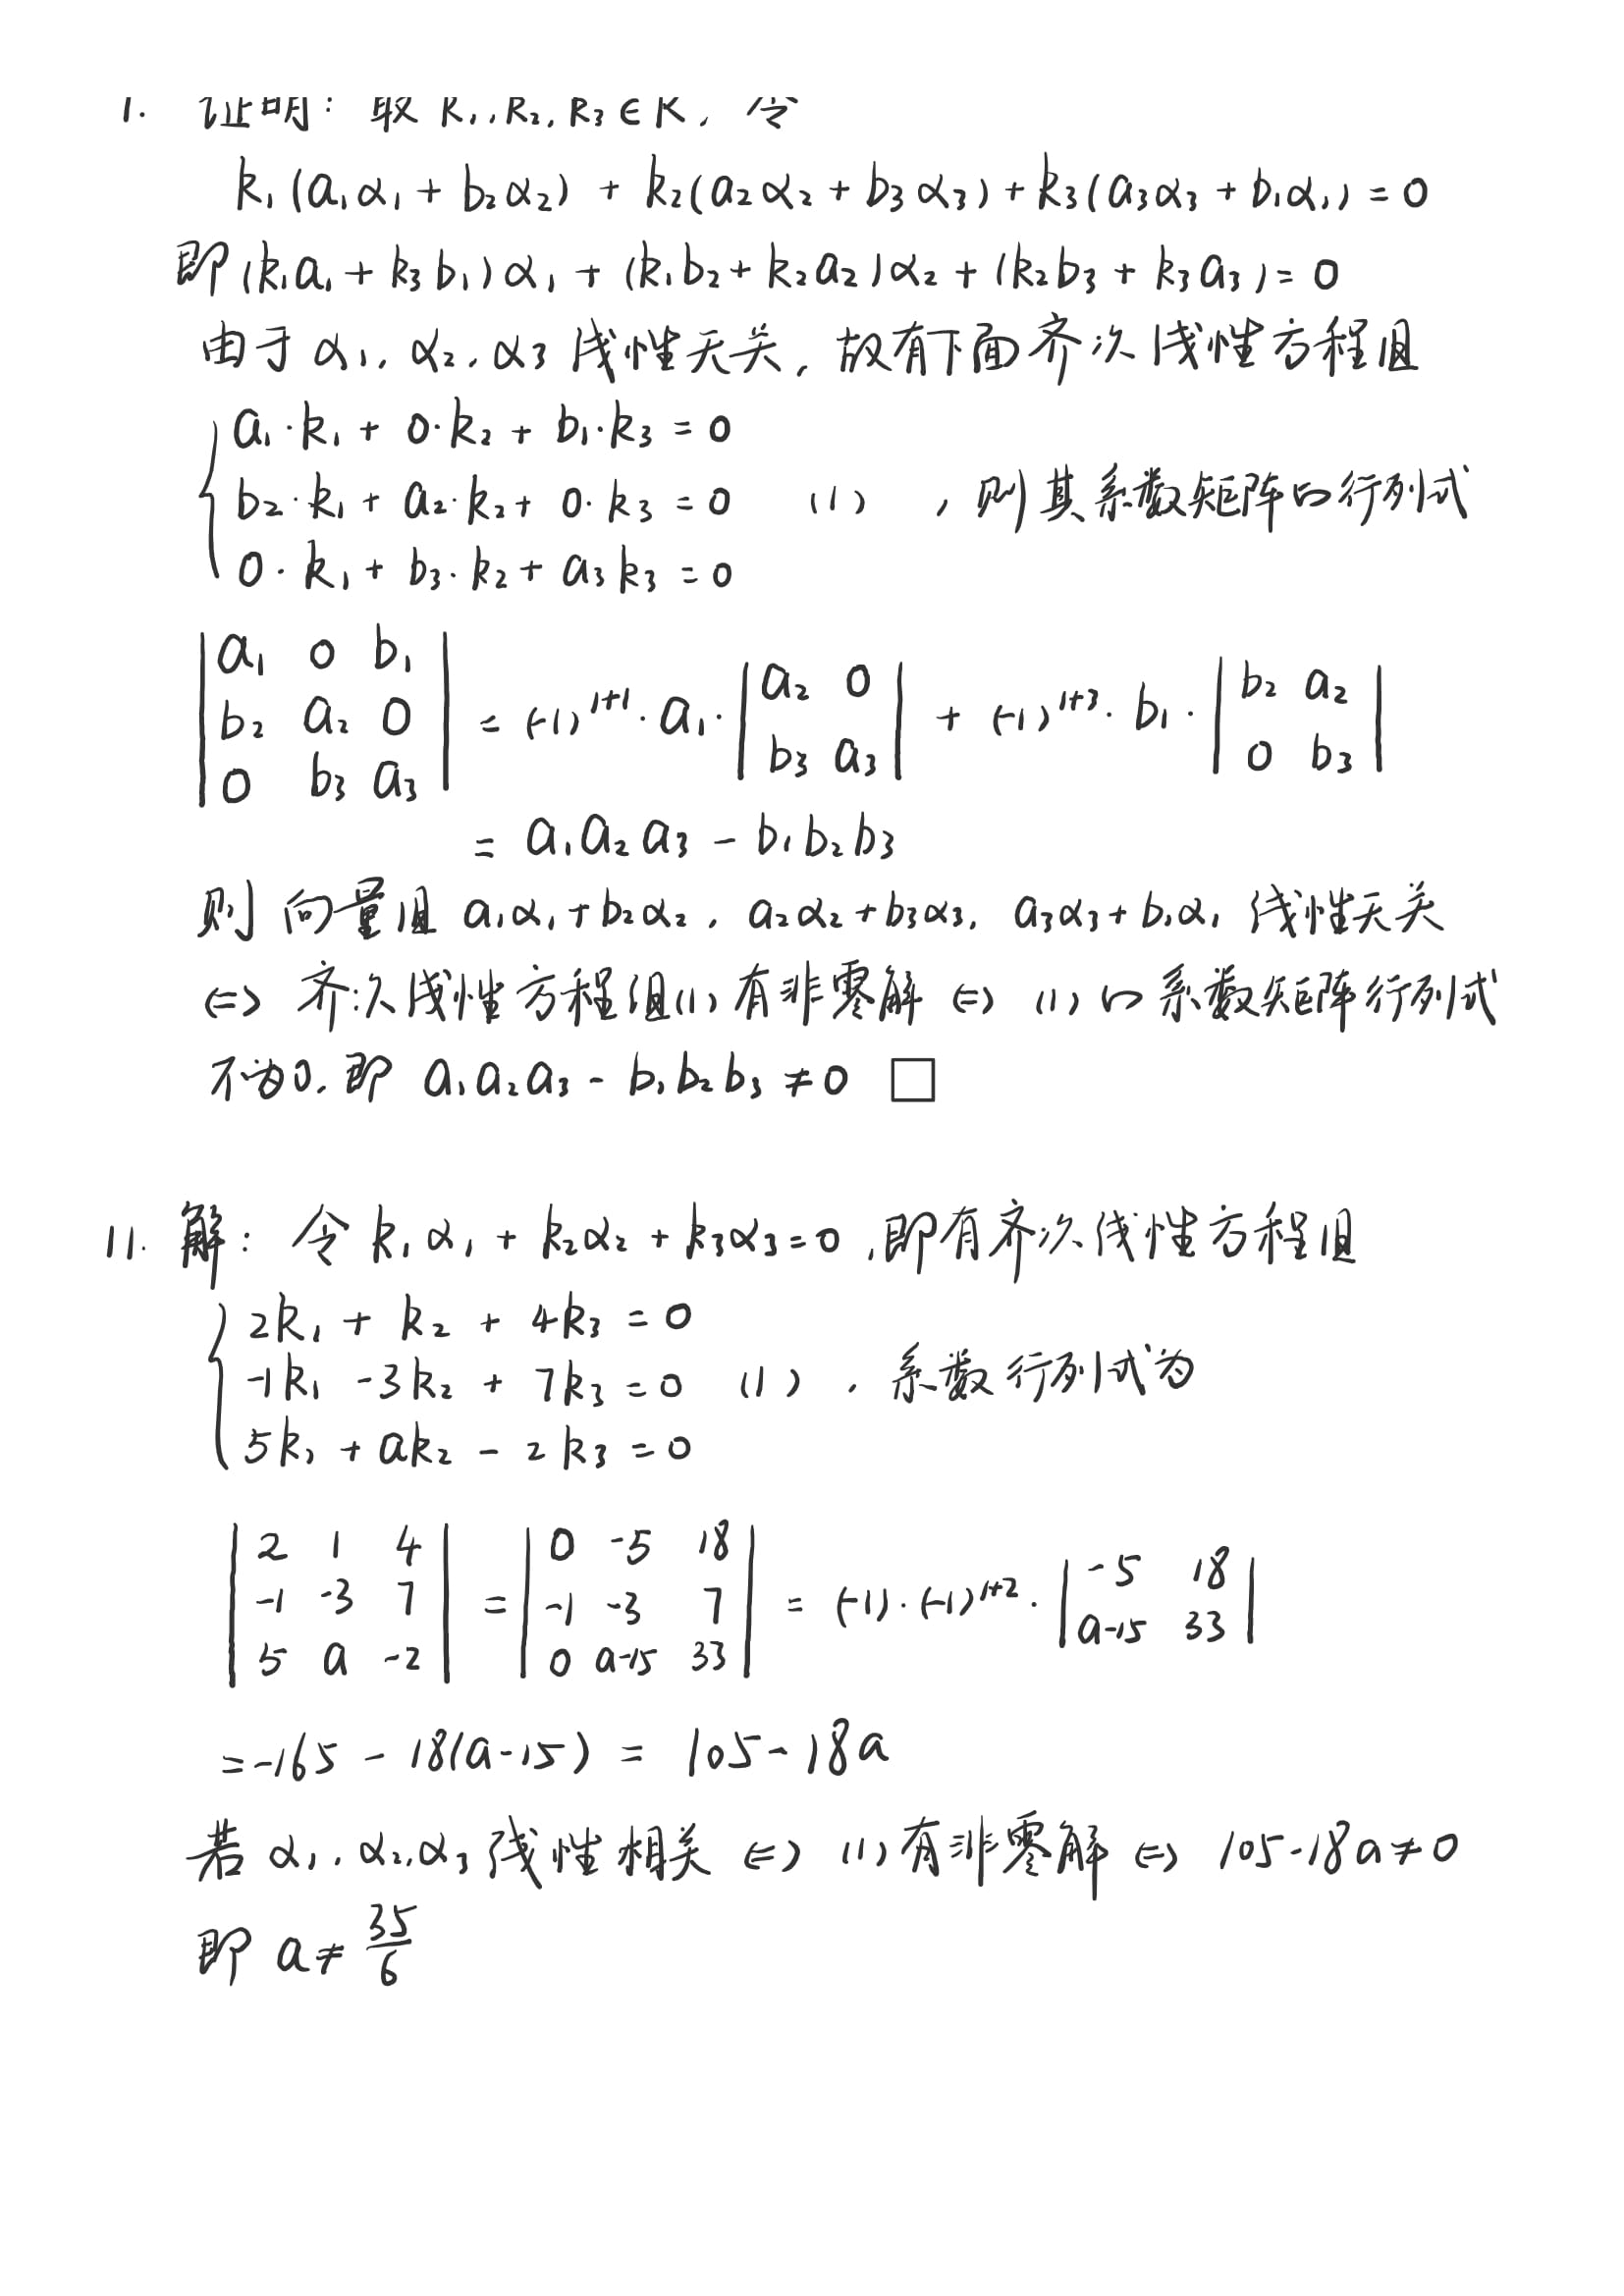 1. 证明: 取 k₁, k₂, k₃ ∈ K, 令
k₁(a₁α₁ + b₂α₂) + k₂(a₂α₂ + b₃α₃) + k₃(a₃α₃ + b₁α₁) = 0
即 (k₁a₁ + k₃b₁)α₁ + (k₁b₂ + k₂a₂)α₂ + (k₂b₃ + k₃a₃) = 0
由于 α₁, α₂, α₃ 线性无关, 故有下面齐次线性方程组
a₁·k₁ + 0·k₂ + b₁·k₃ = 0
b₂·k₁ + a₂·k₂ + 0·k₃ = 0 (1) , 则其系数矩阵的行列式
0·k₁ + b₃·k₂ + a₃k₃ = 0
| a₁ 0 b₁ |
| b₂ a₂ 0 | = (-1)¹⁺¹·a₁· | a₂ 0 ; b₃ a₃ | + (-1)¹⁺³·b₁· | b₂ a₂ ; 0 b₃ |
| 0 b₃ a₃ |
= a₁a₂a₃ - b₁b₂b₃
则 向量组 a₁α₁+b₂α₂, a₂α₂+b₃α₃, a₃α₃+b₁α₁ 线性无关
⇔ 齐次线性方程组(1)有非零解 ⇔ (1)的系数矩阵行列式
不为0, 即 a₁a₂a₃ - b₁b₂b₃ ≠ 0 □
11. 解: 令 k₁α₁ + k₂α₂ + k₃α₃ = 0, 即有齐次线性方程组
2k₁ + k₂ + 4k₃ = 0
-1k₁ - 3k₂ + 7k₃ = 0 (1) , 系数行列式为
5k₁ + ak₂ - 2k₃ = 0
| 2 1 4 | | 0 -5 18 |
| -1 -3 7 | = | -1 -3 7 | = (-1)·(-1)¹⁺²· | -5 18 ; a-15 33 |
| 5 a -2 | | 0 a-15 33 |
= -165 - 18(a-15) = 105 - 18a
若 α₁, α₂, α₃ 线性相关 ⇔ (1)有非零解 ⇔ 105-18a ≠ 0
即 a ≠ 35/6